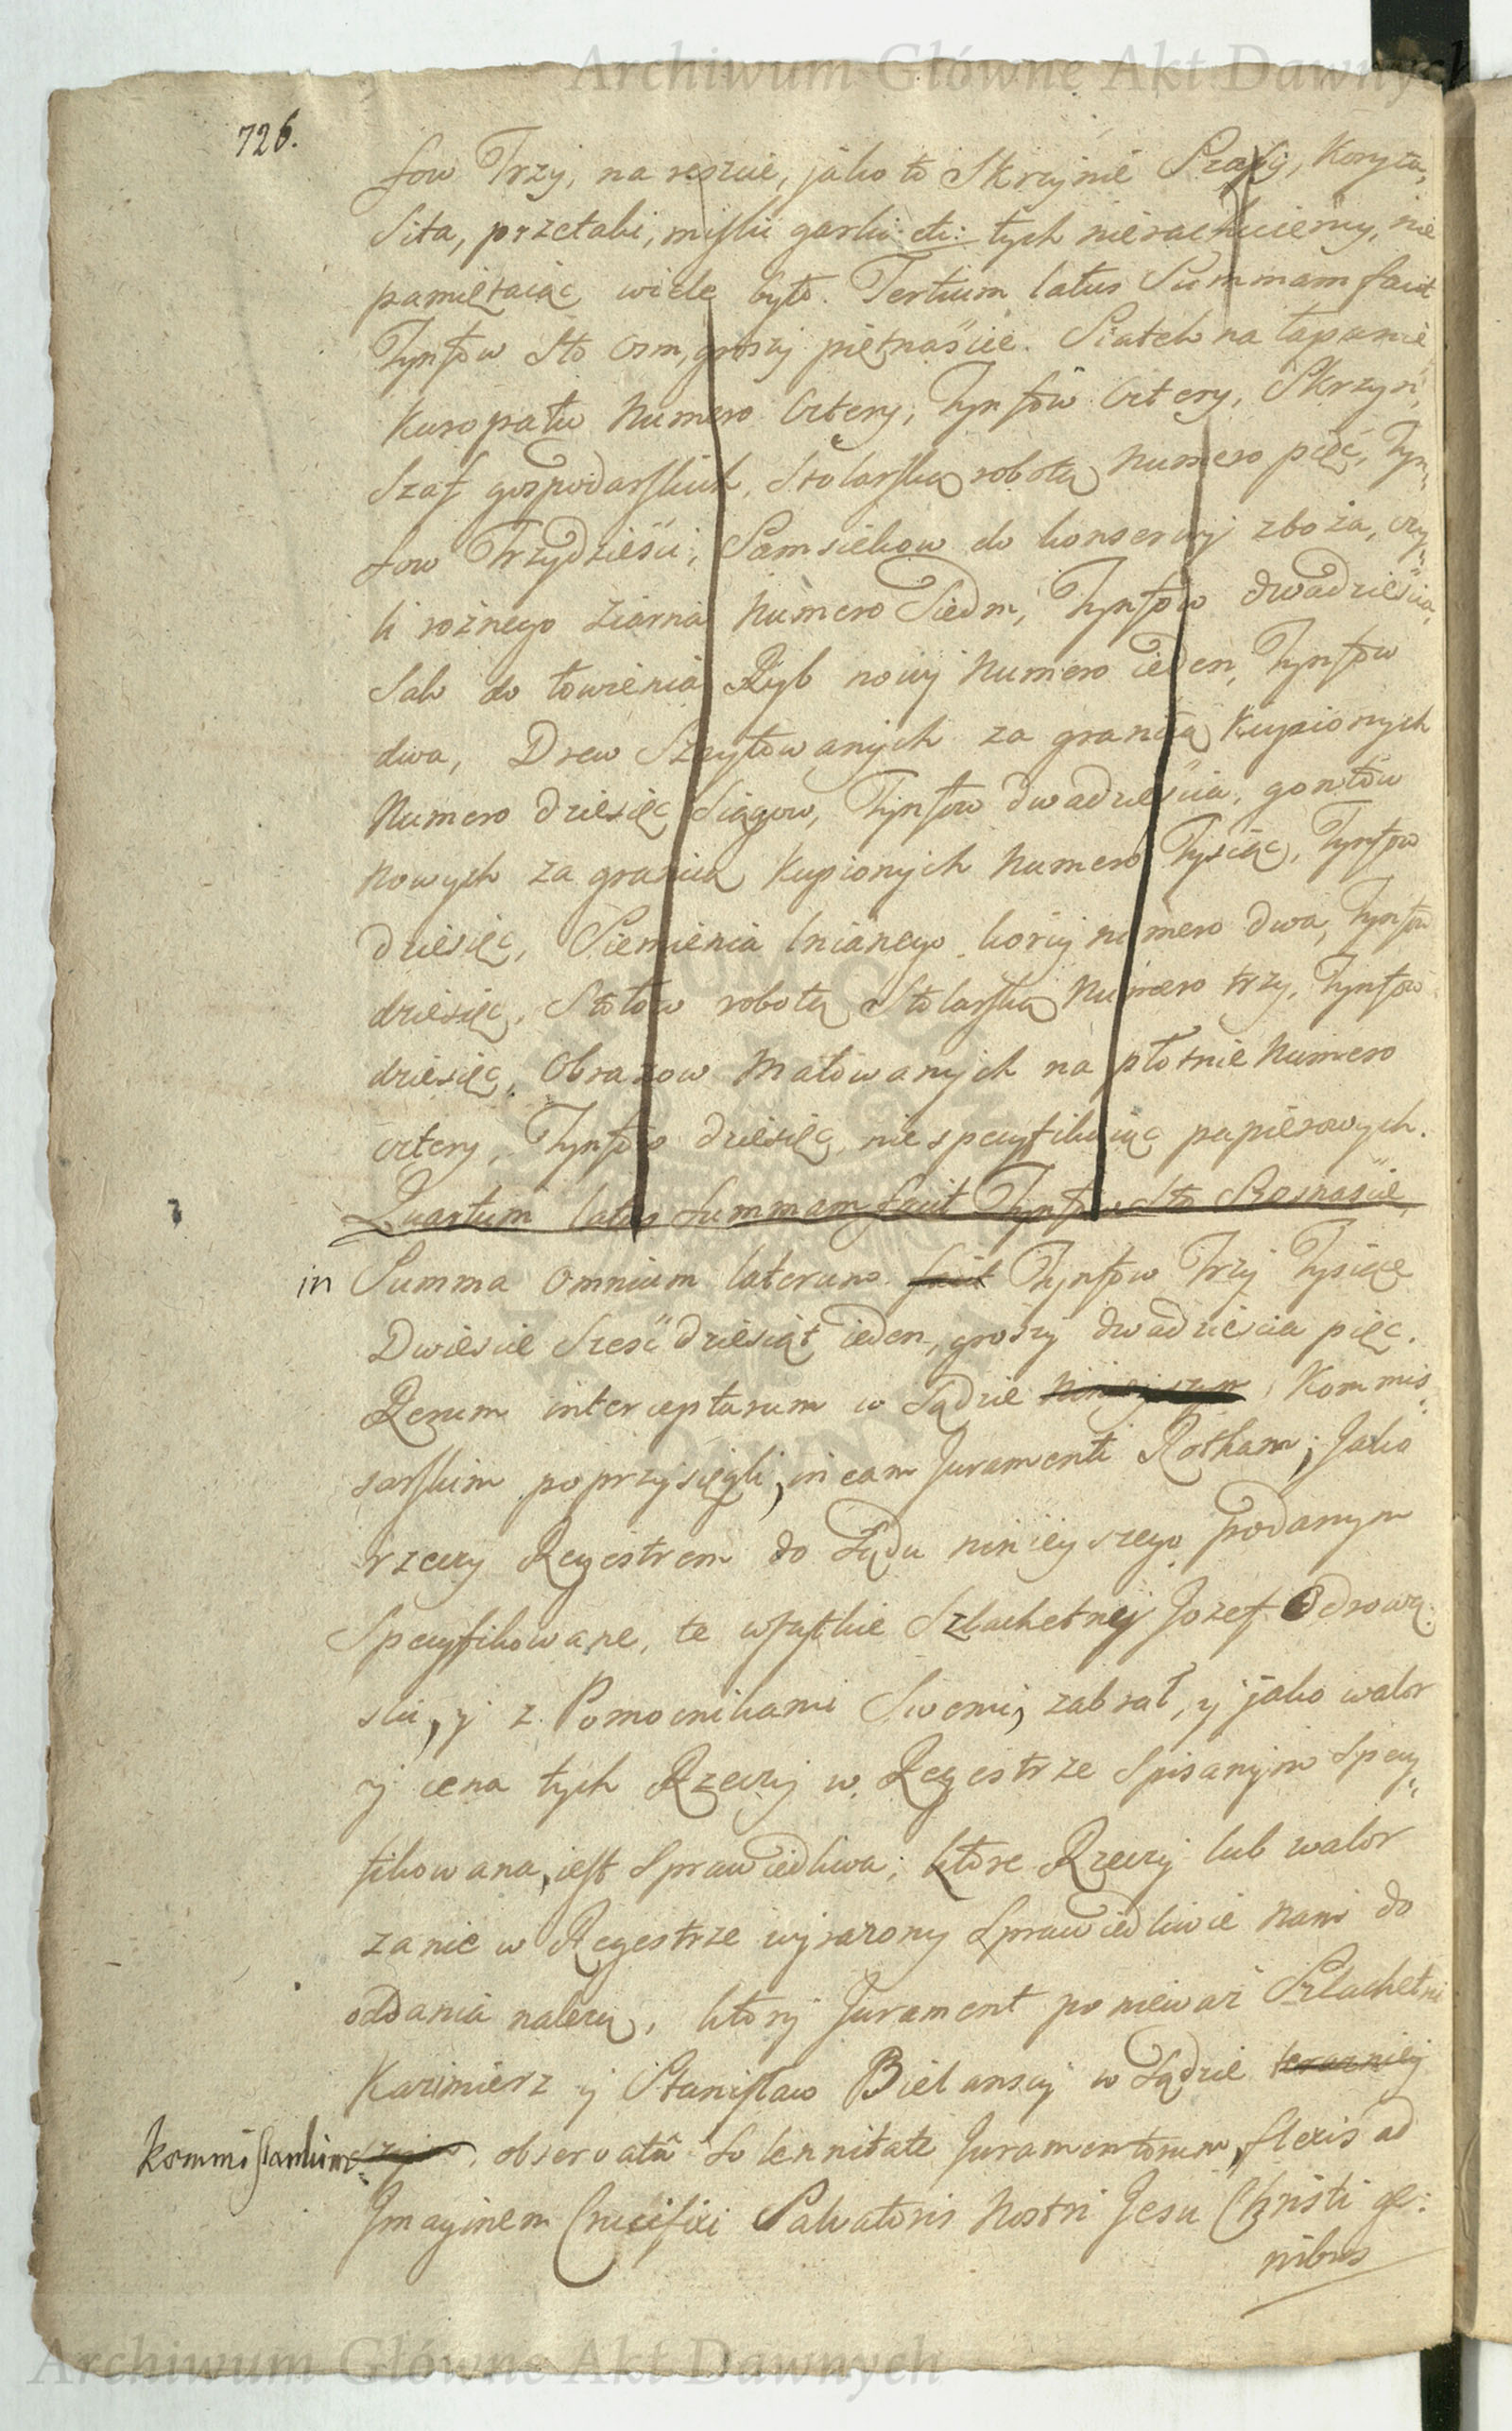 Archiwum Główne Akt Dawnych
726.
fow Trzy, na reszcie, jako to Skrzynie Szafy, Koryta,
Sita, przetaki, miski garki etc: tych nierachuiemy, nie
pamiętaiąc wiele było. Tertium latus Summam facit
Tynfow Sto Osm, groszy piętnaście. Siatek na łapanie
Kuropatw Numero Cztery, Tynfow Cztery, Skrzyń,
Szaf gospodarskich, Stolarską robotą Numero pięć, Tyn„
fow Trzydzieści, Sąmsiekow do konserwij zboża, czy„
li rożnego ziarna Numero Siedm, Tynfow dwadzieścia,
Sak do łowienia Ryb nowy Numero ieden, Tynfow
dwa, Drew Szczytowanych za granicą Kupionych
Numero dziesięc Siągow, Tynfow dwadzieścia, gontow
Nowych za granicą Kupionych Numero Tysiąc, Tynfow
dziesięc, Siemienia lnianego korcy numero dwa, Tynfow
dziesięc, Stołow robotą Stolarską Numero trzy, Tynfow
dziesięc, Obrazow Malowanych na płotnie Numero
cztery, Tynfow dziesięc, niespecyfikuiąc papierowych.
Quartum latus Summam facit Tynfow Sto Szesnaście,
in Summa omnium laterum facit Tynfow Trzy Tysiące
Dwieście Sześćdziesiąt ieden, groszy dwadzieścia pięc.
Rerum interceptarum w Sądzie Ninieyszym Kommis„
sarskim poprzysięgli, in eam Juramenti Rotham; Jako
rzeczy Regestrem do Sądu ninieyszego podanym
Specyfikowane, te wszystkie Szlachetny Jozef Odrową„
ski, y z Pomocnikami Swemi, zabrał, y jako walor
y cena tych Rzeczy w Regestrze Spisanym Specy„
fikowana, iest Sprawiedliwa; ktore Rzeczy lub walor
zanie w Regestrze wyrazony Sprawiedliwie nam do
oddania nalezą, ktory Jurament poniewaz Szlachetni
Kazimierz y Stanisław Bielanscy w Sądzie teraznięy
Kommissarskim szym observatâ Solennitate Juramentorum, flexis ad
Imaginem Crucifixi Salvatoris Nostri Jesu Christi ge:
nibus
Archiwum Główne Akt Dawnych